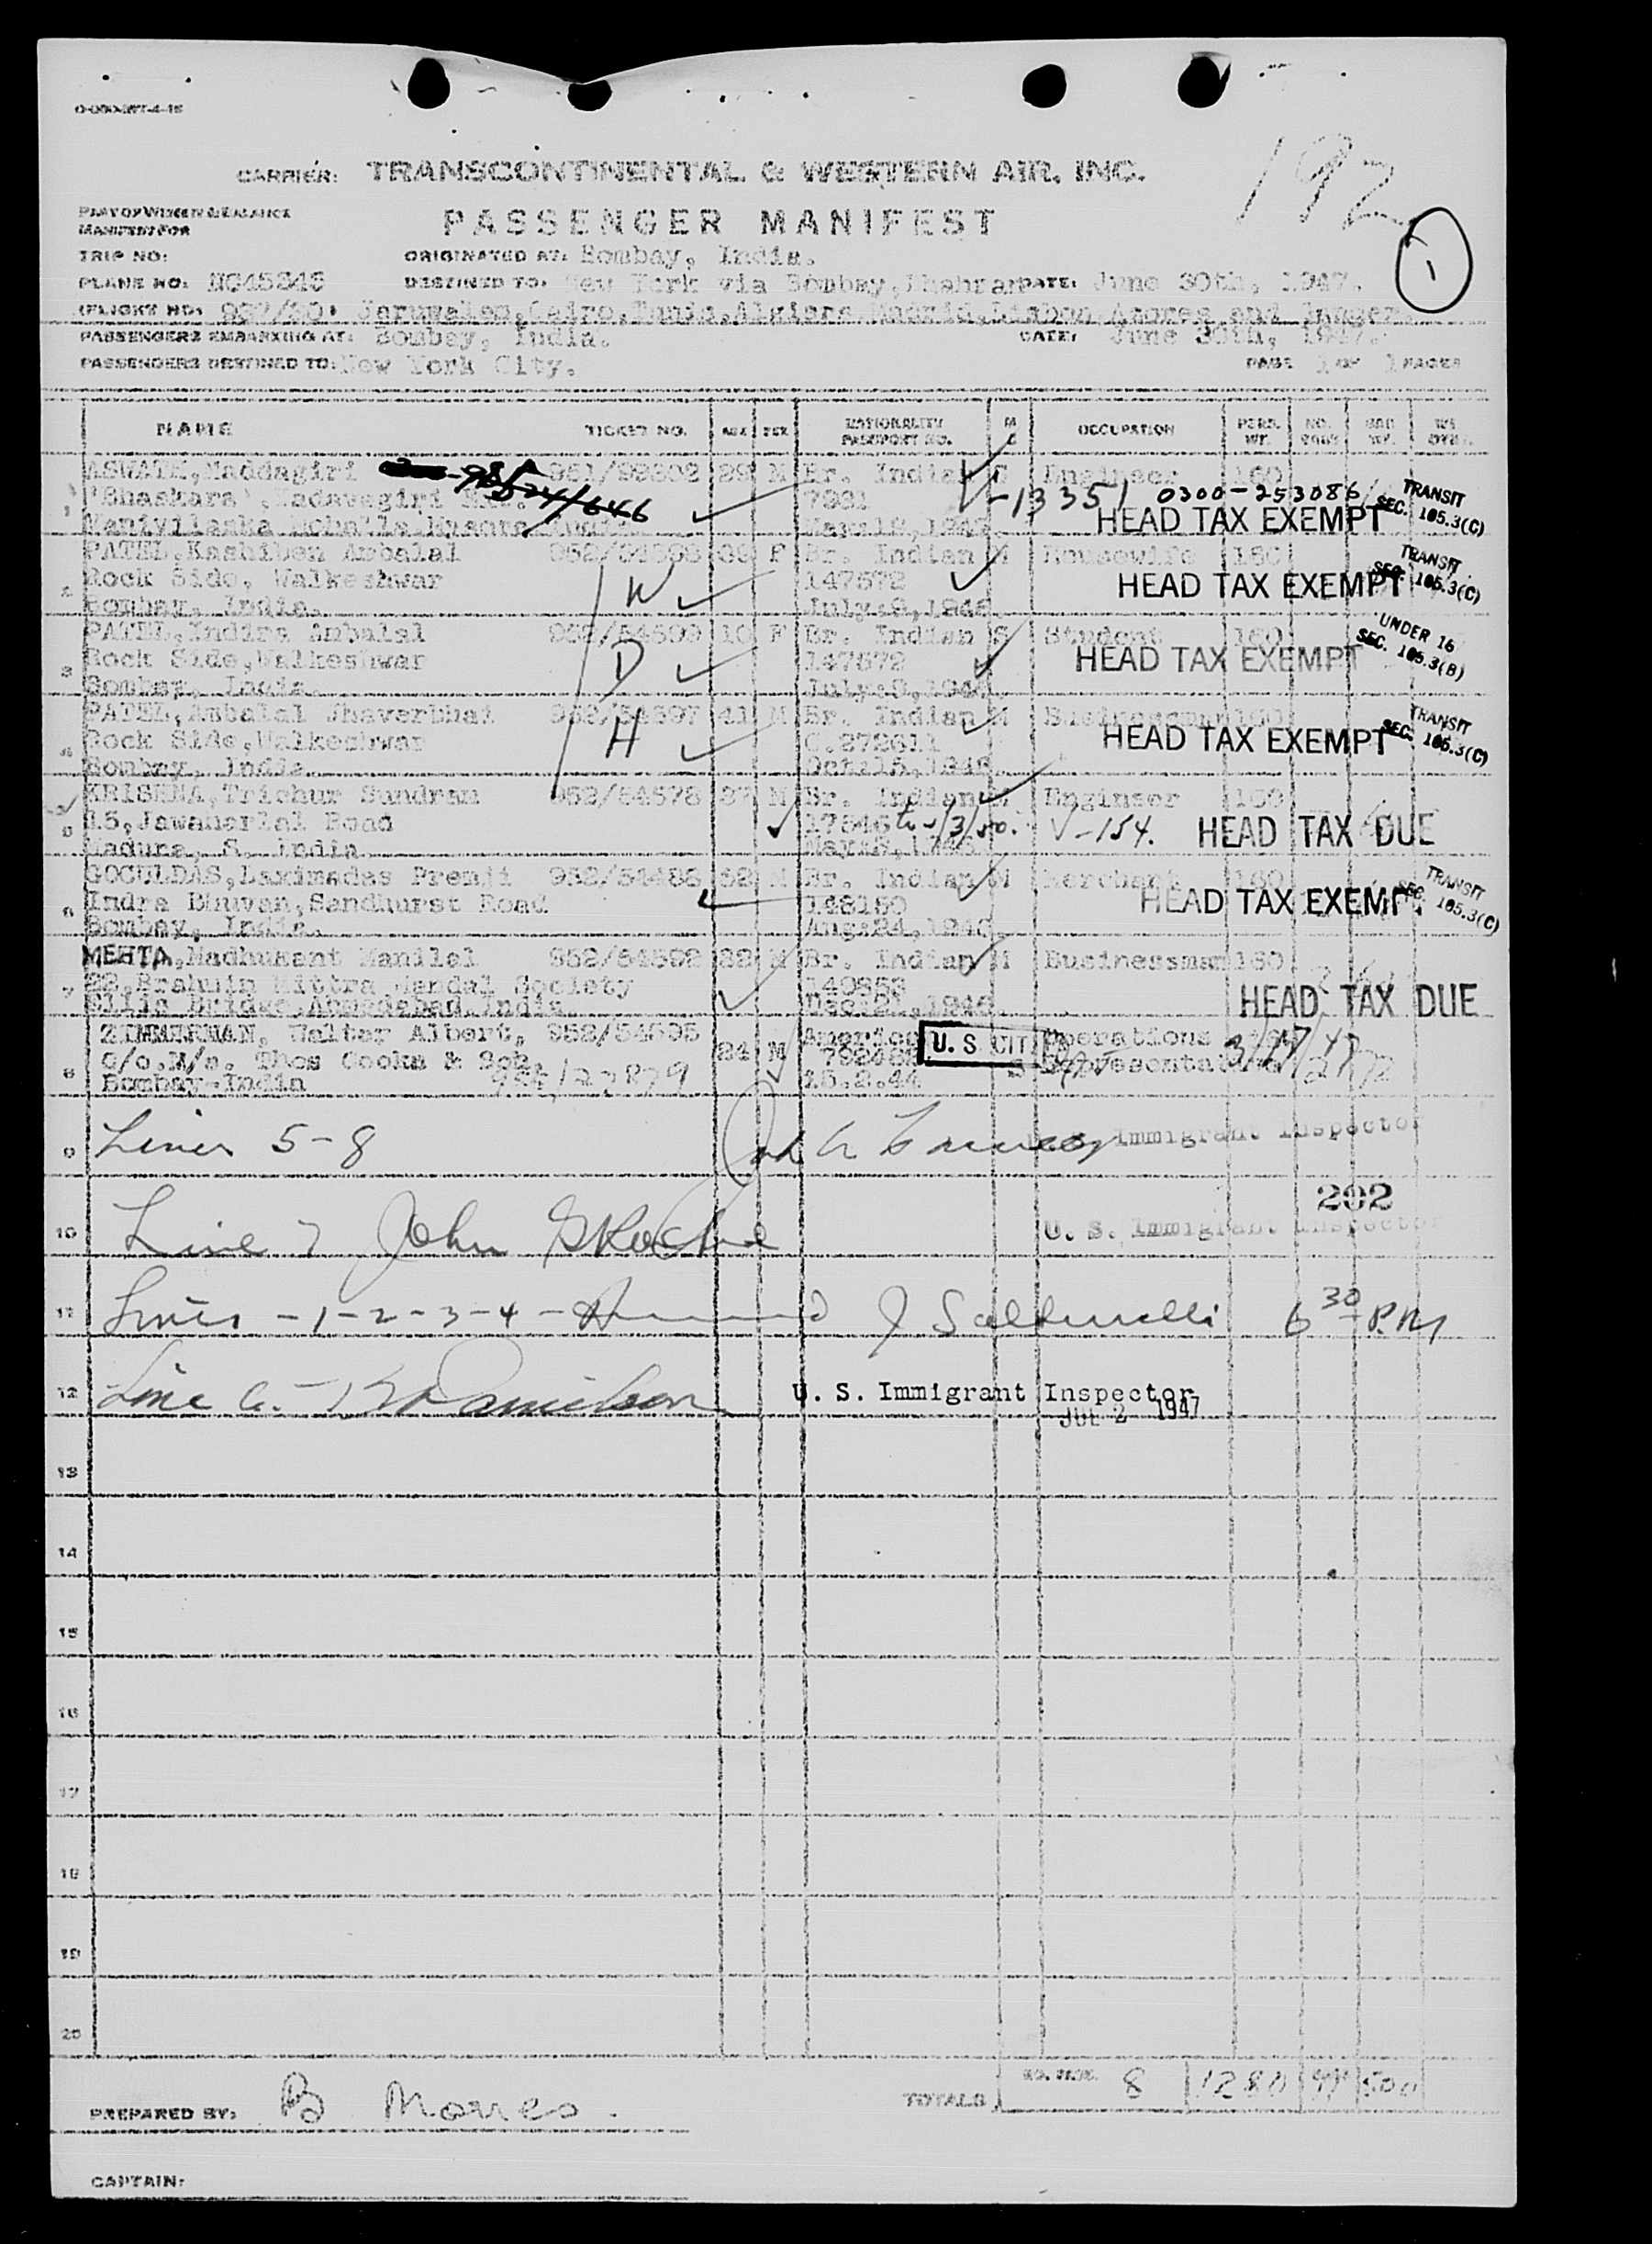 192
1
CARRIER: TRANSCONTINENTAL & WESTERN AIR, INC.
PASSENGER MANIFEST
MANIFEST FOR
TRIP NO: ORIGINATED AT: Bombay, India.
PLANE NO: NC45345 DESTINED TO: New York via Bombay, Dhahran DATE: June 30th, 1947.
FLIGHT NO: 927/30. Jerusalem, Cairo, Tunis, Algiers, Madrid, Lisbon, Azores and
PASSENGERS EMBARKING AT: Bombay, India. DATE: June 30th, 1947.
PASSENGERS DESTINED TO: New York City. PAGE 1 OF 1 PAGES
NAME TICKET NO. AGE SEX NATIONALITY PASSPORT NO. M S OCCUPATION PERS. WT. NO. BAG WT.
1 ASWATH, Maddagiri 951/92302 29 M Br. Indian S Engineer 160
'Bhaskara', 7221 V-13351 0300-253086 TRANSIT
HEAD TAX EXEMPT SEC. 105.3(C)
2 PATEL, Kashiben Ambalal F Br. Indian M Housewife 160 TRANSIT
Rock Side, Walkeshwar W 147672 HEAD TAX EXEMPT SEC. 105.3(C)
Bombay, India. July:9,1946.
3 PATEL, Indira Ambalal 952/54599 10 F Br. Indian S Student 160 UNDER 16
Rock Side, Walkeshwar D 147672 HEAD TAX EXEMPT SEC. 105.3(B)
Bombay, India. July:9,1946.
4 PATEL, Ambalal Jhaverbhai 952/54597 41 M Br. Indian M Businessman 160 TRANSIT
Rock Side, Walkeshwar H C.272611 HEAD TAX EXEMPT SEC. 105.3(C)
Bombay, India. Oct:15,1946.
5 KRISHNA, Trichur Sundram 952/54578 37 M Br. Indian M Engineer 160
15, Jawaharlal Road V-154. HEAD TAX DUE
Madura, S. India
6 GOCULDAS, Laximadas Premji 952/54488 52 M Br. Indian M Merchant 160 TRANSIT
Indra Bhuvan, Sandhurst Road 148150 HEAD TAX EXEMPT SEC. 105.3(C)
Bombay, India. Aug:24,1946.
7 MEHTA, Madhukant Manilal 952/54592 22 M Br. Indian M Businessman 160
22, Brahmin Mittra Mandal Society HEAD TAX DUE
Ellis Bridge, Ahmedabad, India. Dec:21,1946.
8 ZIMMERMAN, Walter Albert, 952/54595 24 M American U. S. CIT Operations
c/o. M/s. Thos Cooks & Son, Representative
Bombay-India 15.2.44
9 Lines 5-8 Immigrant Inspector
202
10 Line 7 John U. S. Immigrant Inspector
11 Lines -1-2-3-4- J 6 30 P.M
12 Line 6. U. S. Immigrant Inspector
JUL 2 1947
13
14
15
16
17
18
19
20
TOTALS 8 1280 500
PREPARED BY: B
CAPTAIN: